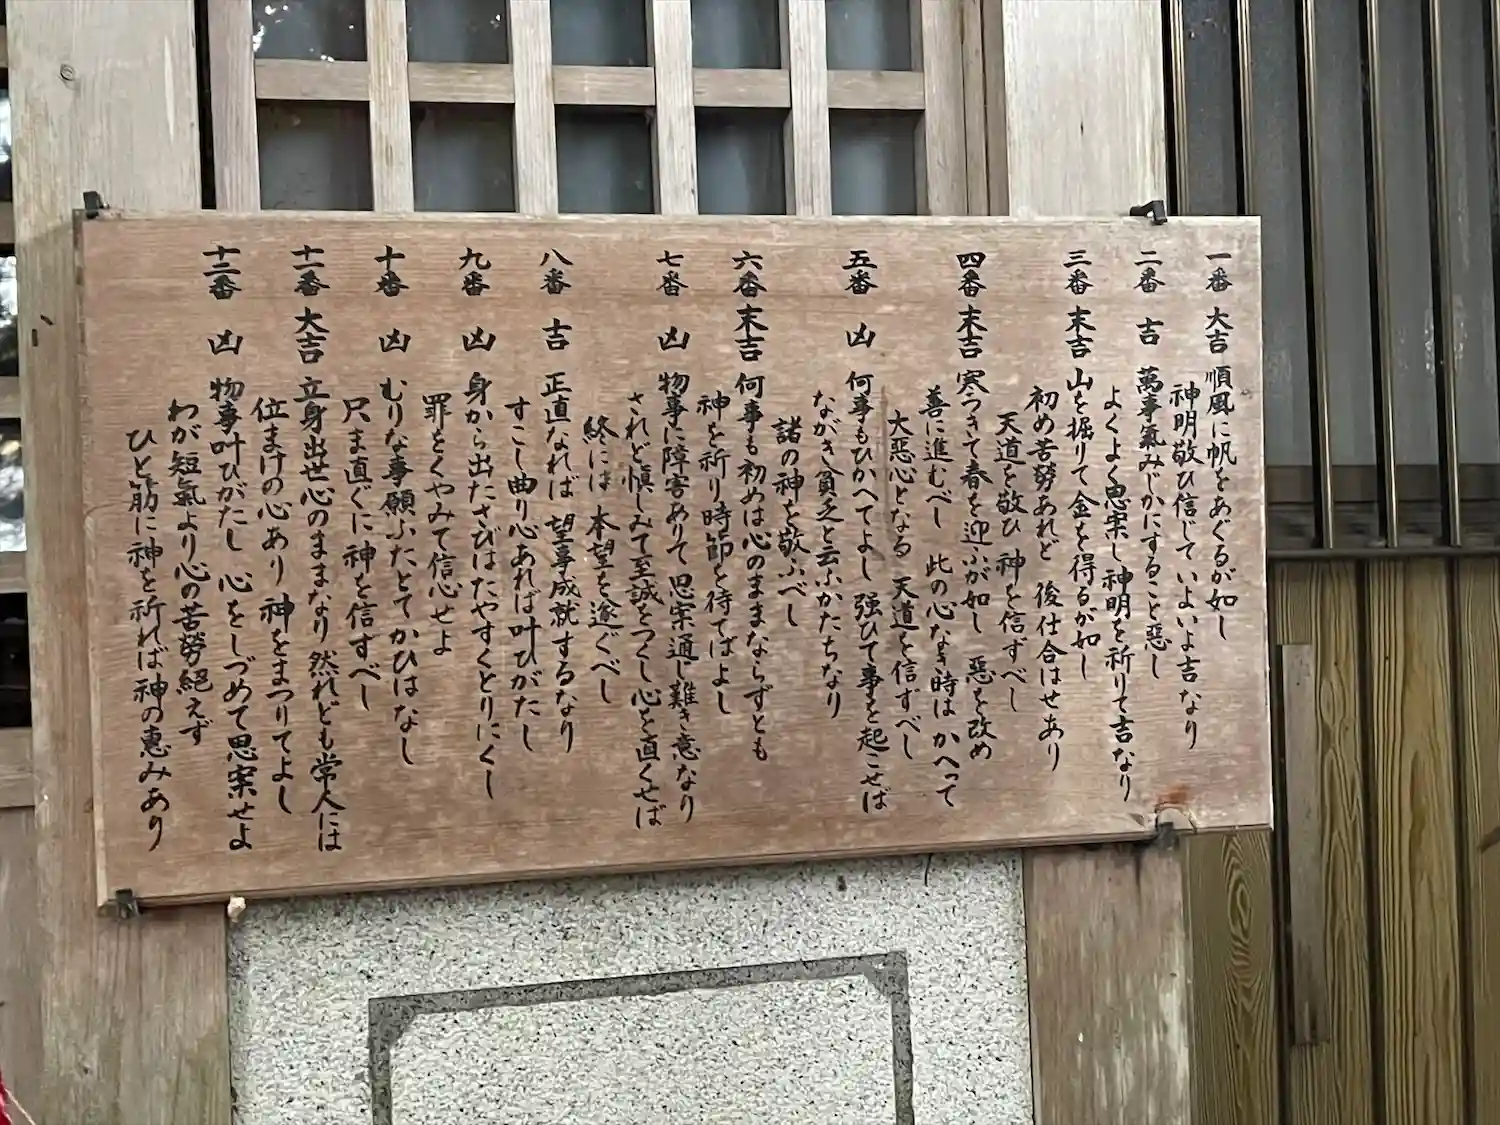 一番 大吉 順風に帆をあぐるが如し
神明敬ひ信じて いよいよ吉なり
二番 吉 萬事氣みじかにすること惡し
よくよく思案し神明を祈りて吉なり
三番 末吉 山を掘りて金を得るが如し
初め苦勞あれど 後仕合はせあり
天道を敬ひ 神を信ずべし
四番 末吉 寒つきて春を迎ふが如し 惡を改め
善に進むべし 此の心なき時は かへって
大惡心となる 天道を信ずべし
五番 凶 何事もひかへてよし 强ひて事を起こせば
ながき貧乏と云ふかたちなり
諸の神を敬ふべし
六番 末吉 何事も初めは心のままならずとも
神を祈り時節を待てばよし
七番 凶 物事に障害ありて 思案通じ難き意なり
されど愼しみて至誠をつくし心を直くせば
終には 本望を遂ぐべし
八番 吉 正直なれば 望事成就するなり
すこし曲り心あれば叶ひがたし
九番 凶 身から出たさびはたやすくとりにくし
罪をくやみて信心せよ
十番 凶 むりな事願ふたとてかひはなし
只ま直ぐに神を信すべし
十一番 大吉 立身出世心のままなり 然れども常人には
位まけの心あり 神をまつりてよし
十二番 凶 物事叶ひがたし 心をしづめて思案せよ
わが短氣より心の苦勞絕えず
ひと筋に神を祈れば神の惠みあり